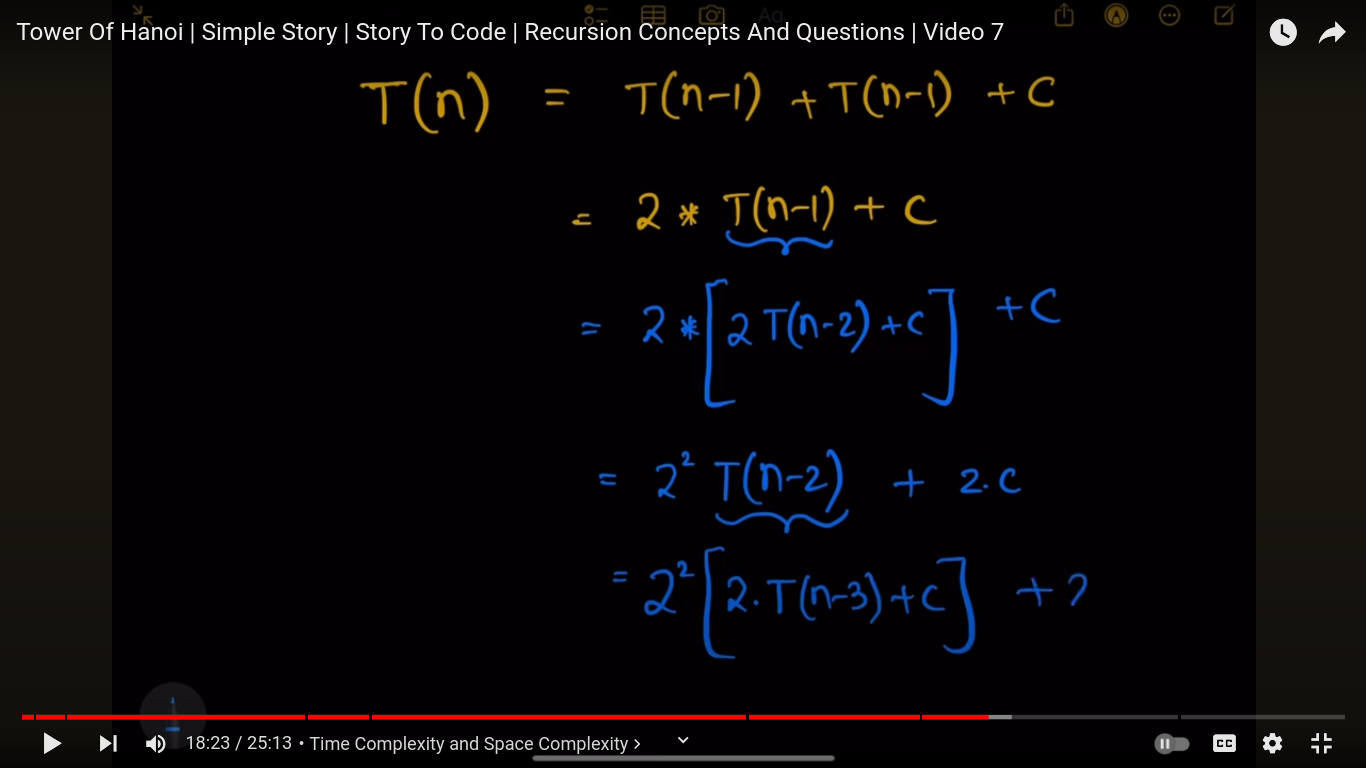 Tower Of Hanoi | Simple Story | Story To Code | Recursion Concepts And Questions | Video 7
Aa
T(n) = T(n-1) + T(n-1) + C
= 2 * T(n-1) + C
= 2 * [2 T(n-2) + C] + C
= 2² T(n-2) + 2.C
= 2² [2.T(n-3) + C] + 2
18:23 / 25:13 • Time Complexity and Space Complexity >
CC